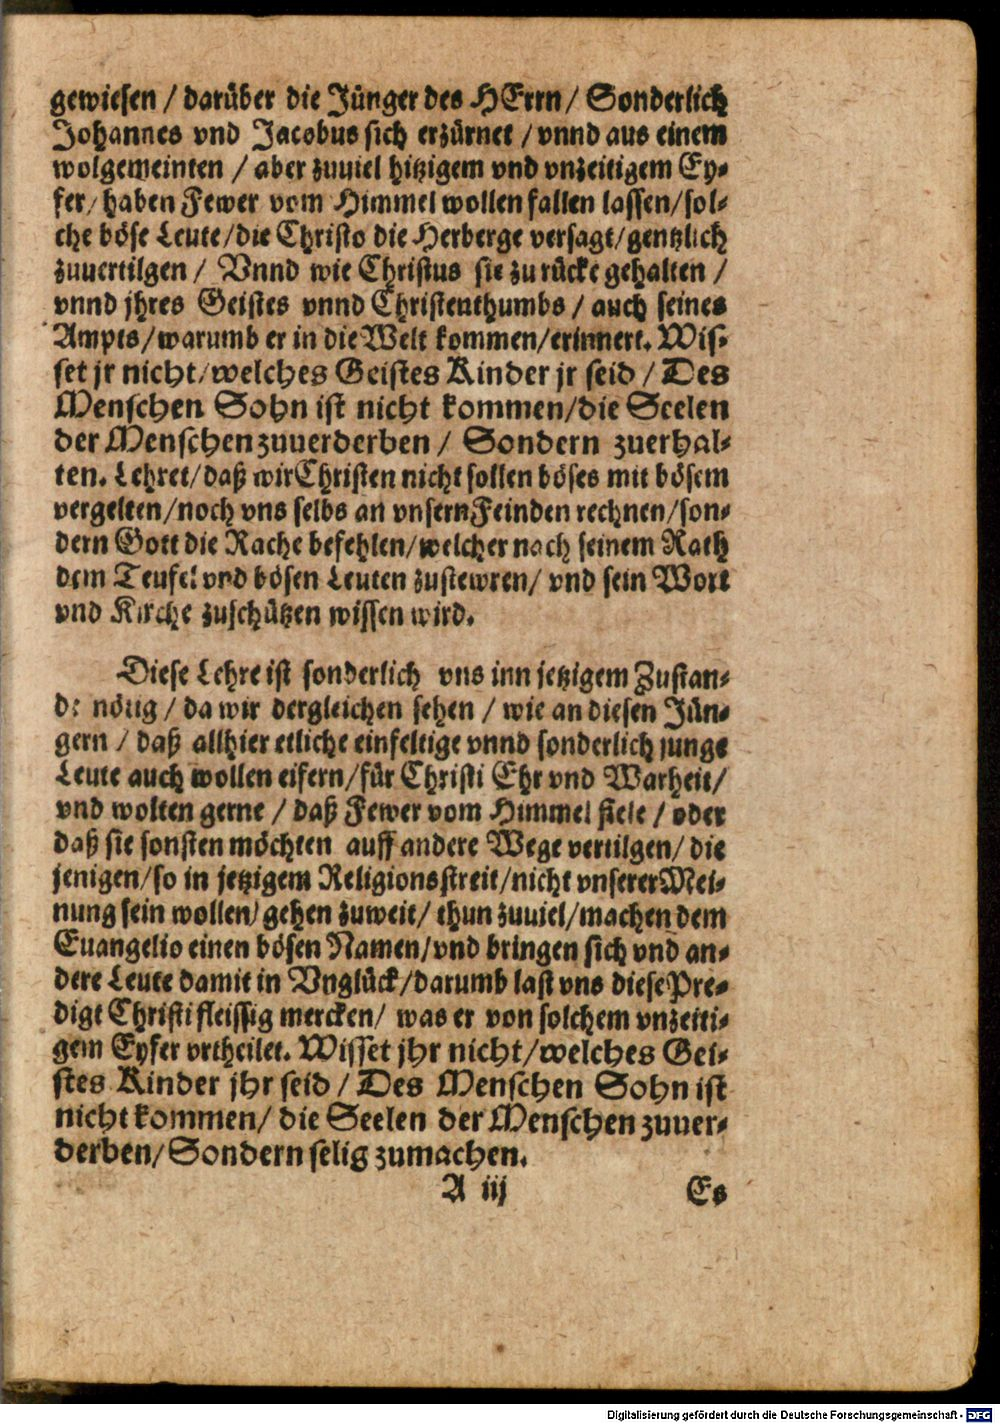 gewiesen / darüber die Jünger des HErrn / Sonderlich
Johannes vnd Jacobus sich erzürnet / vnnd aus einem
wolgemeinten / aber zuuiel hitzigem vnd vnzeitigem Ey-
fer / haben Fewer vom Himmel wollen fallen lassen / sol-
che böse Leute / die Christo die Herberge versagt / gentzlich
zuuertilgen / Vnnd wie Christus sie zu rücke gehalten /
vnnd jhres Geistes vnnd Christenthumbs / auch seines
Ampts / warumb er in die Welt kommen / erinnert. Wis-
set jr nicht / welches Geistes Kinder jr seid / Des
Menschen Sohn ist nicht kommen / die Seelen
der Menschen zuuerderben / Sondern zuerhal-
ten. Lehret / daß wir Christen nicht sollen böses mit bösem
vergelten / noch vns selbs an vnsern Feinden rechnen / son-
dern Gott die Rache befehlen / welcher nach seinem Rath
dem Teufel vnd bösen Leuten zustewren / vnd sein Wort
vnd Kirche zuschützen wissen wird.
Diese Lehre ist sonderlich vns inn jetzigem Zustan-
de nötig / da wir dergleichen sehen / wie an diesen Jün-
gern / daß allhier etliche einfeltige vnnd sonderlich junge
Leute auch wollen eifern / für Christi Ehr vnd Warheit /
vnd wolten gerne / daß Fewer vom Himmel fiele / oder
daß sie sonsten möchten auff andere Wege vertilgen / die
jenigen / so in jetzigem Religionsstreit / nicht vnserer Mei-
nung sein wollen / gehen zuweit / thun zuuiel / machen dem
Euangelio einen bösen Namen / vnd bringen sich vnd an-
dere Leute damit in Vnglück / darumb last vns diese Pre-
digt Christi fleissig mercken / was er von solchem vnzeiti-
gem Eyfer vrtheilet. Wisset jhr nicht / welches Gei-
stes Kinder jhr seid / Des Menschen Sohn ist
nicht kommen / die Seelen der Menschen zuuer-
derben / Sondern selig zumachen.
A iij Es
Digitalisierung gefördert durch die Deutsche Forschungsgemeinschaft - DFG